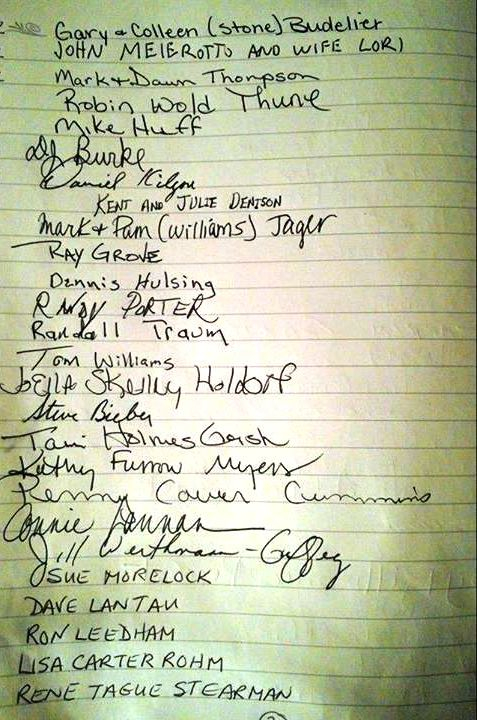 Gary & Colleen (Stone) Budelier
JOHN MEIEROTTO AND WIFE LORI
Mark & Dawn Thompson
Robin Wold Thune
Mike Huff
DJ Burke
Daniel Kilgou
KENT AND JULIE DENISON
Mark & Pam (Williams) Jager
RAY GROVE
Dennis Hulsing
RANDY PORTER
Randall Traum
Tom Williams
Joella Skelley Holdorf
Steve Bieber
Tami Holmes Gersh
Kathy Furrow Myers
Penny Cummins
Connie
Jill Werthmann-
SUE MORELOCK
DAVE LANTAU
RON LEEDHAM
LISA CARTER ROHM
RENE TAGUE STEARMAN